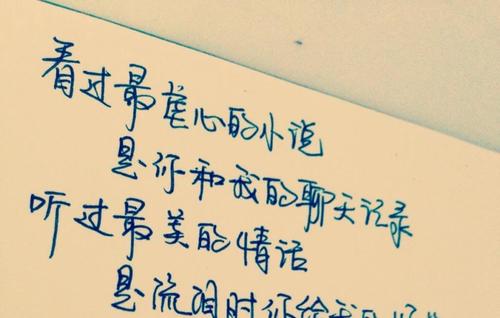 看过最虐心的小说
是你和我的聊天记录
听过最美的情话
是流泪时你给我的